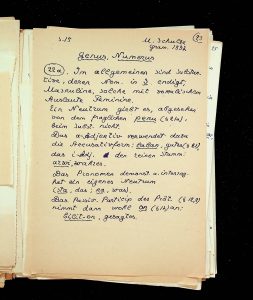 S. 15 U. Schulze
Gram. 1892
Genus, Numerus
22a). Im allgemeinen sind Substan-
tive, deren Nom. in s endigt,
Masculina, solche mit vocalischem
Auslaute Feminine.
Ein Neutrum giebt es, abgesehen
von dem fraglichen
beim Subst. nicht.
Das a-Adjectiv verwendet dazu
die Accusativform: gutes
das i Adj. den reinen Stamm:
arwi, wahres.
Das Pronomen demonst. u. interrog.
hat ein eigenes Neutrum
(sta, das; ka, was).
Das Passiv Particip des Prät.
nimmt dazu wohl on an:
billit-on, gesagtes.